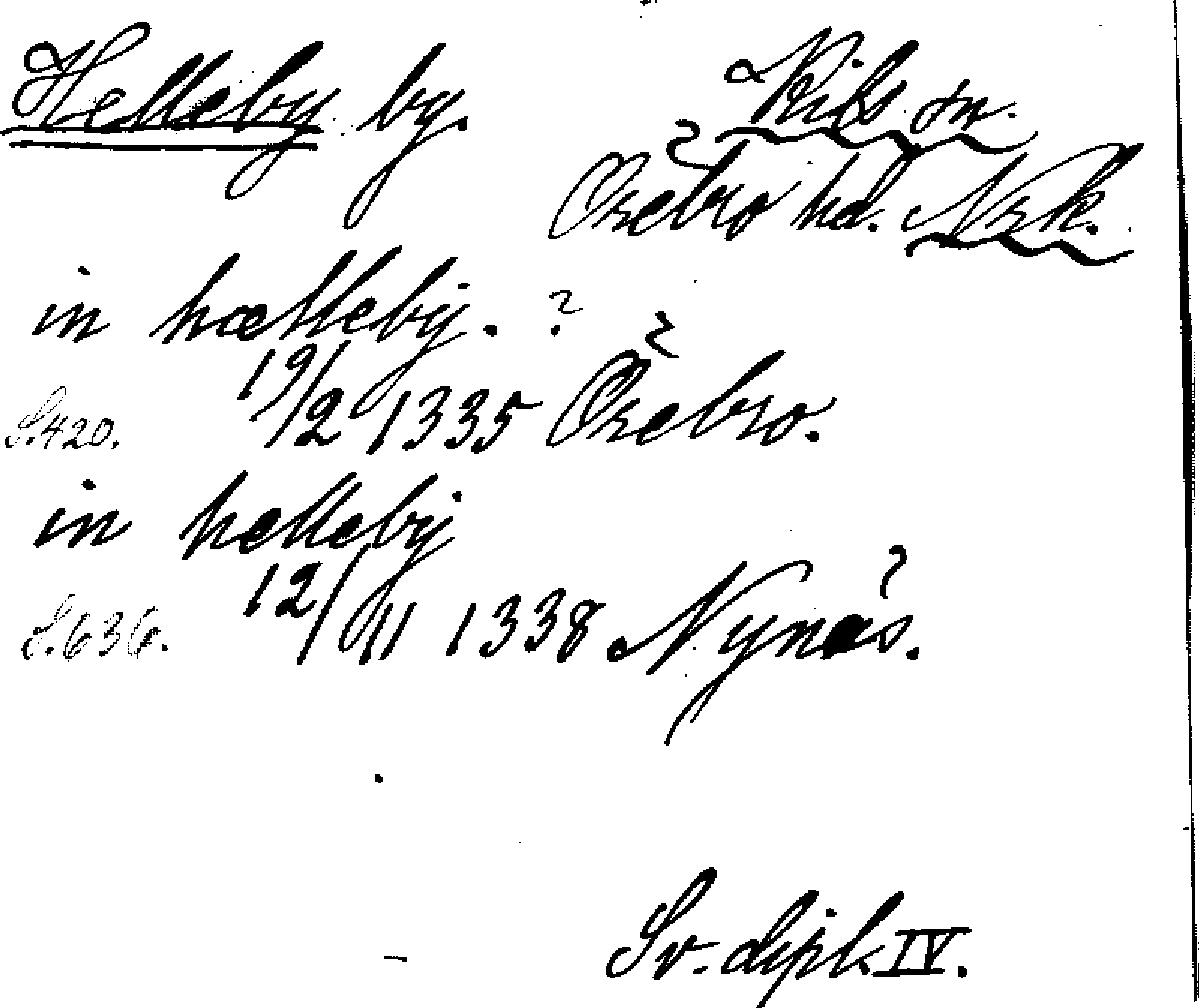 Helleby by. Kils sn.
Örebro hd. Nrk.
in hælleby. ?
S.420. 19/2 1335 Örebro.
in hælleby
S.636. 12/11 1338 Nynäs.
Sv. dipl. IV.